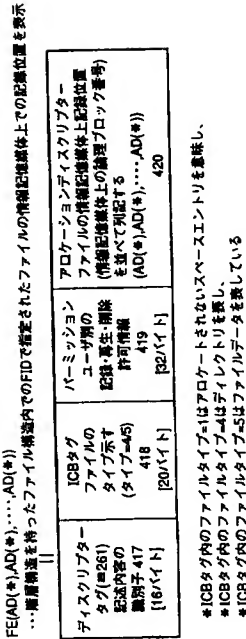 FE(AD(*),AD(*),‥‥,AD(*))
…階層構造を持ったファイル構造内でのFIDで指定されたファイルの情報記憶媒体上での記録位置を表示
=
ディスクリプター
タグ(=261)
記述内容の
識別子 417
[16バイト]
ICBタグ
ファイルの
タイプ示す
(タイプ=4/5)
418
[20バイト]
パーミッション
ユーザ別の
記録・再生・削除
許可情報
419
[32バイト]
アロケーションディスクリプター
ファイルの情報記憶媒体上記録位置
(情報記憶媒体上の論理ブロック番号)
を並べて列記する
(AD(*),AD(*),‥‥,AD(*))
420
*ICBタグ内のファイルタイプ=1はアロケートされないスペースエントリを意味し、
*ICBタグ内のファイルタイプ=4はディレクトリを表し、
*ICBタグ内のファイルタイプ=5はファイルデータを表している